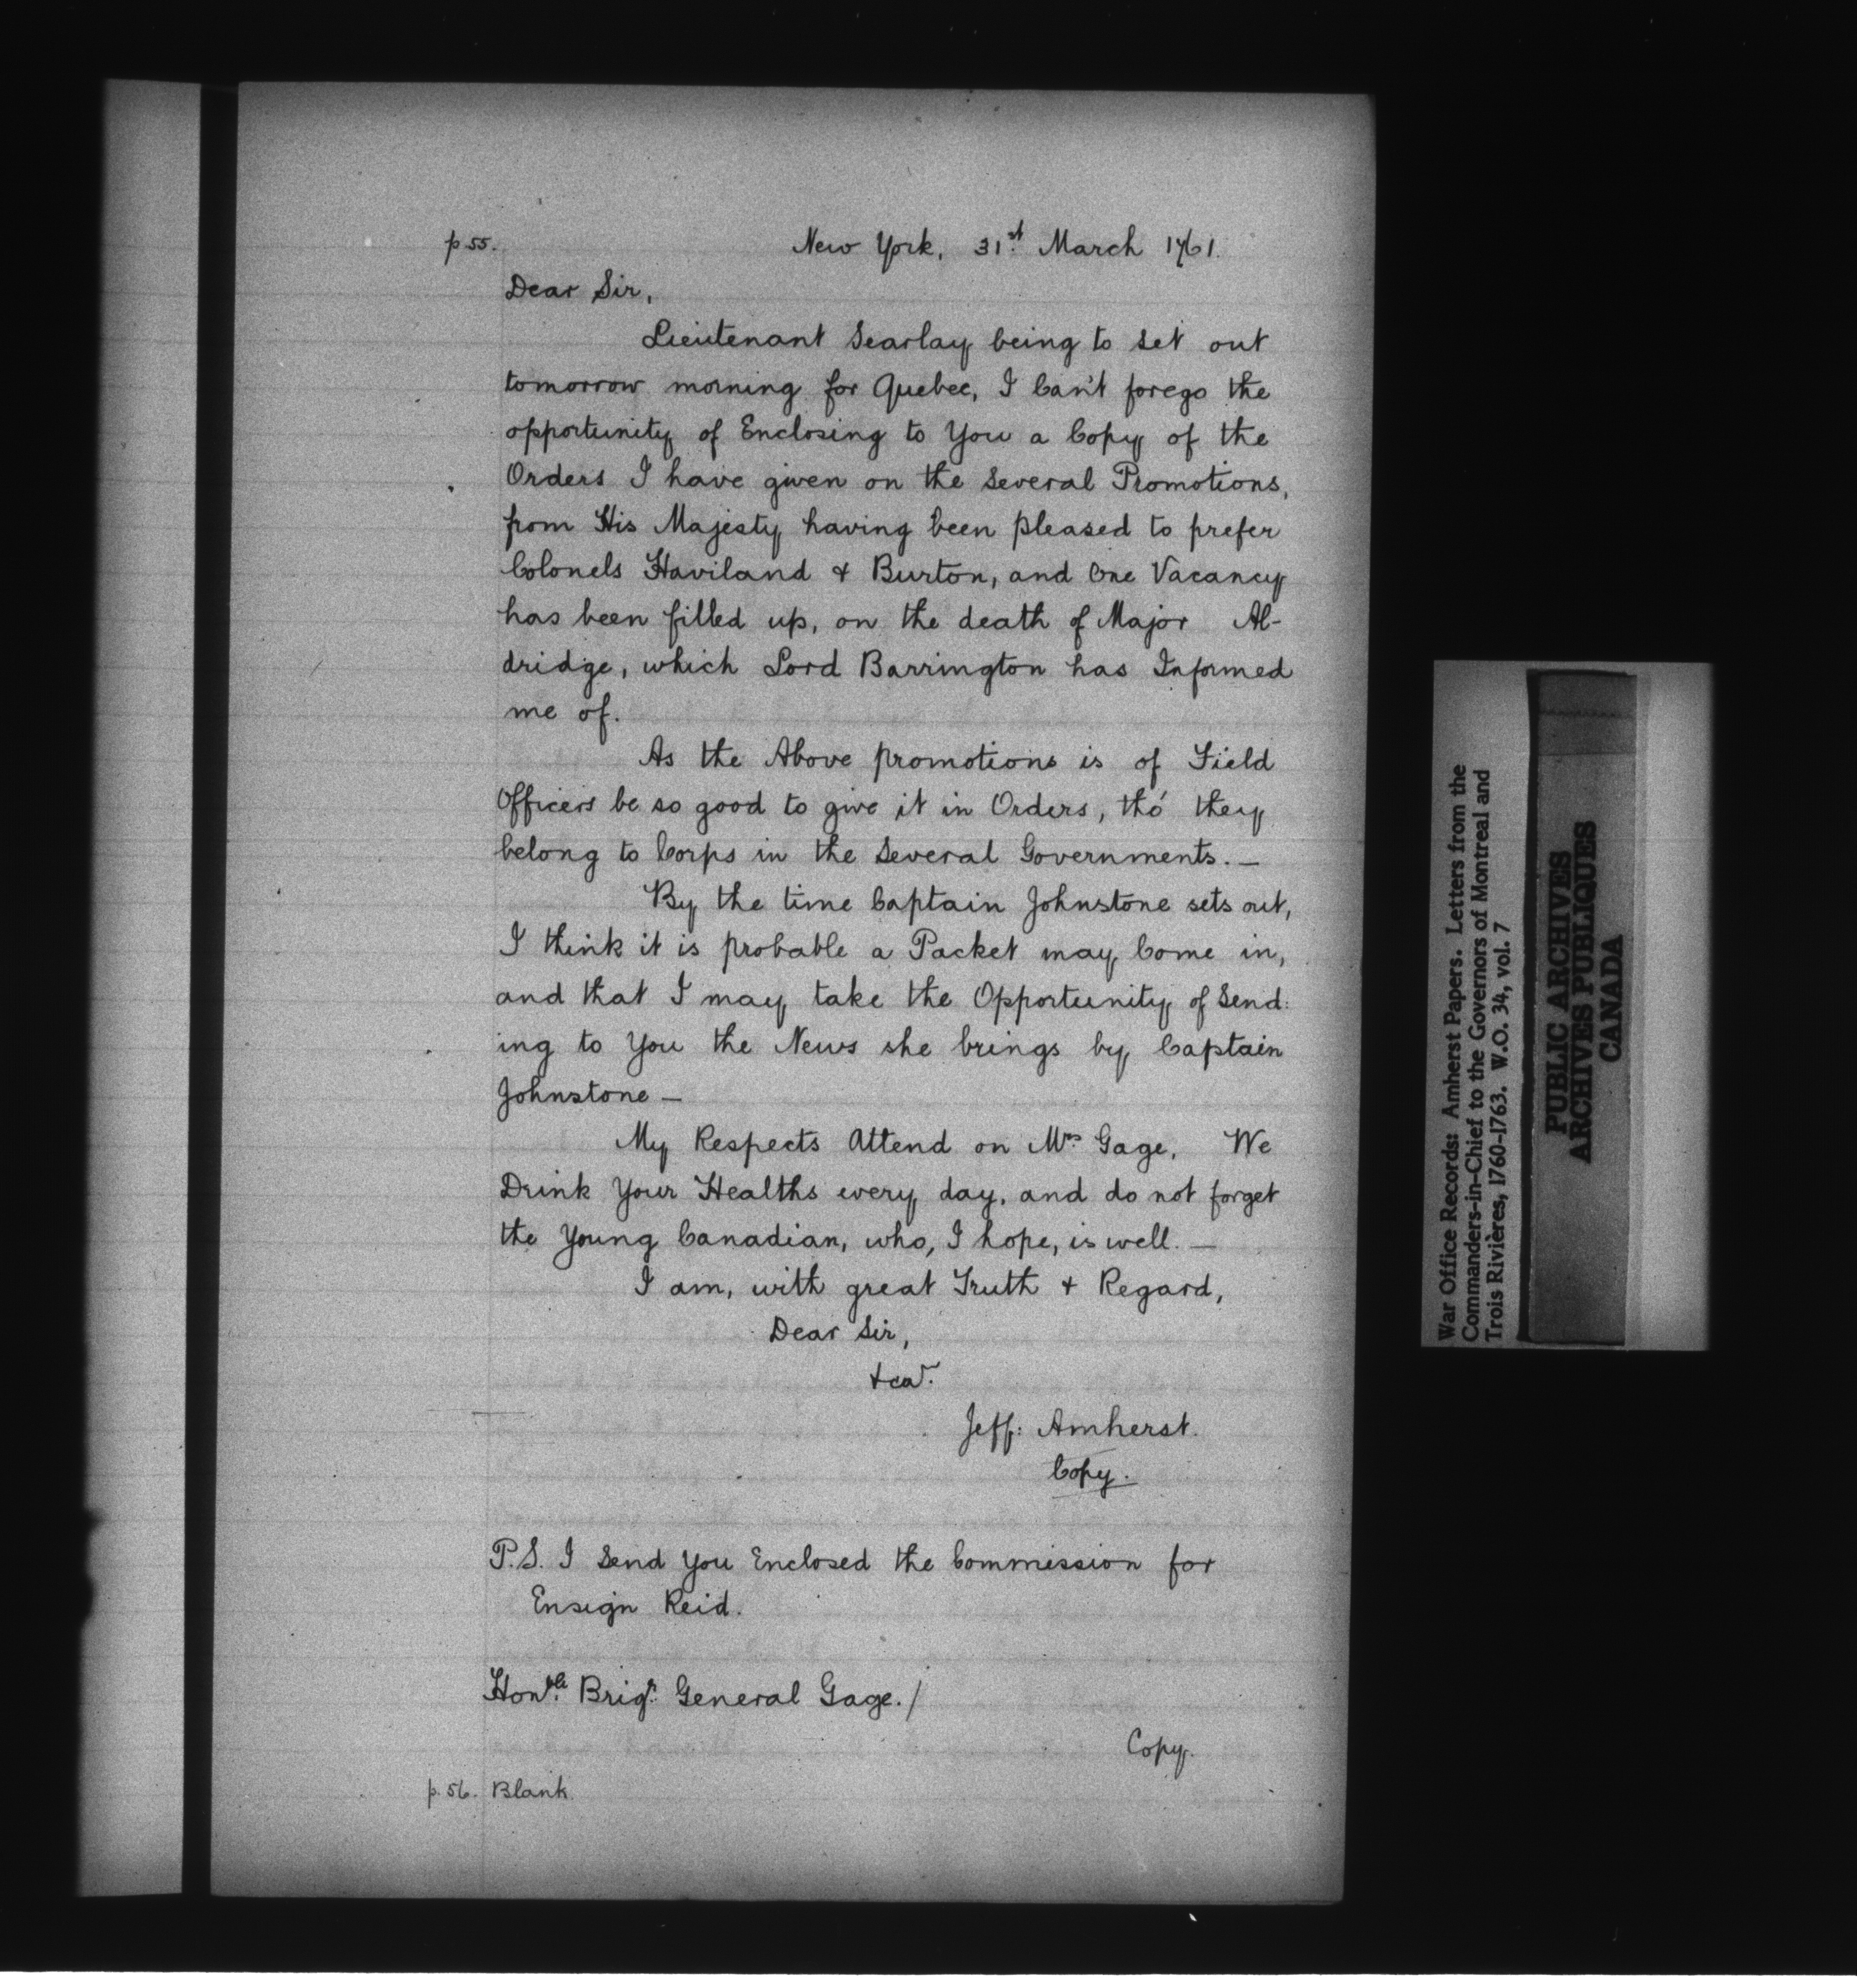 p.55. New York, 31st March 1761.
Dear Sir,
Lieutenant Searlay being to set out
tomorrow morning for Quebec, I Can't forego the
opportunity of Enclosing to You a Copy of the
Orders I have given on the Several Promotions,
from His Majesty having been pleased to prefer
Colonels Haviland & Burton, and One Vacancy
has been filled up, on the death of Major Al-
dridge, which Lord Barrington has Informed
me of.
As the Above promotions is of Field
Officers be so good to give it in Orders, tho' they
belong to Corps in the Several Governments. —
By the time Captain Johnstone sets out,
I think it is probable a Packet may Come in,
and that I may take the Opportunity of Send:
ing to You the News she brings by Captain
Johnstone —
My Respects Attend on Mrs. Gage, We
Drink Your Healths every day, and do not forget
the Young Canadian, who, I hope, is well. —
I am, with great Truth & Regard,
Dear Sir,
&ca.
Jeff: Amherst.
Copy.
P.S. I Send You Enclosed the Commission for
Ensign Reid.
Honble. Brigr. General Gage./
Copy.
p. 56. Blank.
War Office Records: Amherst Papers. Letters from the
Commanders-in-Chief to the Governors of Montreal and
Trois Rivières, 1760-1763. W.O. 34, vol. 7
PUBLIC ARCHIVES
ARCHIVES PUBLIQUES
CANADA